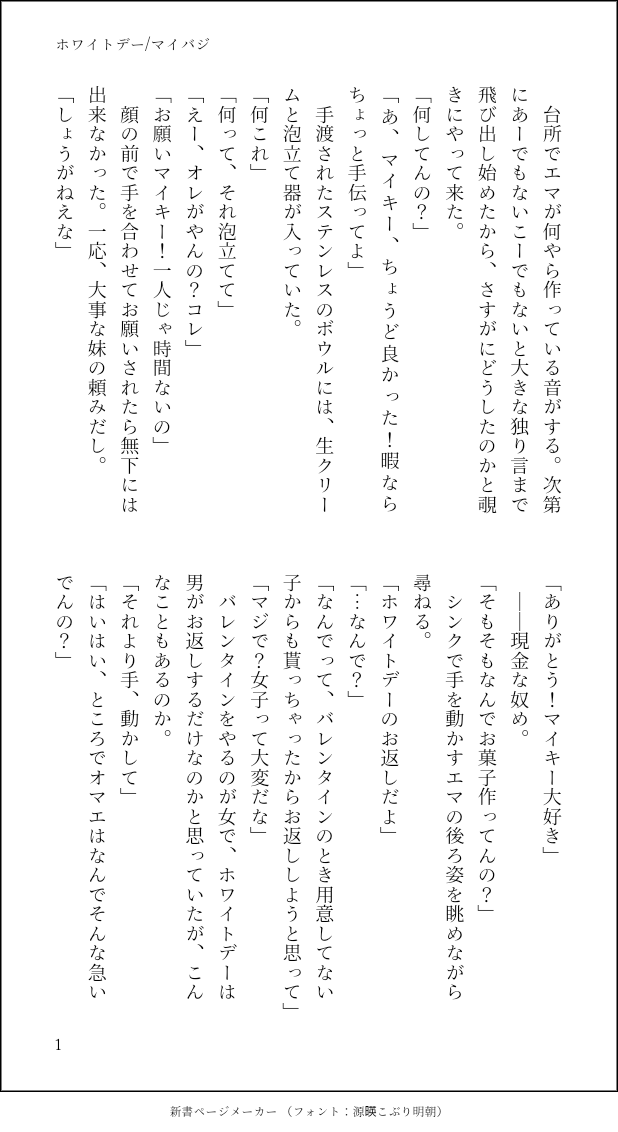 ホワイトデー/マイバジ
　台所でエマが何やら作っている音がする。次第
にあーでもないこーでもないと大きな独り言まで
飛び出し始めたから、さすがにどうしたのかと覗
きにやって来た。
「何してんの？」
「あ、マイキー、ちょうど良かった！暇なら
ちょっと手伝ってよ」
　手渡されたステンレスのボウルには、生クリー
ムと泡立て器が入っていた。
「何これ」
「何って、それ泡立てて」
「えー、オレがやんの？コレ」
「お願いマイキー！一人じゃ時間ないの」
　顔の前で手を合わせてお願いされたら無下には
出来なかった。一応、大事な妹の頼みだし。
「しょうがねえな」
「ありがとう！マイキー大好き」
　――現金な奴め。
「そもそもなんでお菓子作ってんの？」
　シンクで手を動かすエマの後ろ姿を眺めながら
尋ねる。
「ホワイトデーのお返しだよ」
「…なんで？」
「なんでって、バレンタインのとき用意してない
子からも貰っちゃったからお返ししようと思って」
「マジで？女子って大変だな」
　バレンタインをやるのが女で、ホワイトデーは
男がお返しするだけなのかと思っていたが、こん
なこともあるのか。
「それより手、動かして」
「はいはい、ところでオマエはなんでそんな急い
でんの？」
1
新書ページメーカー（フォント：源暎こぶり明朝）